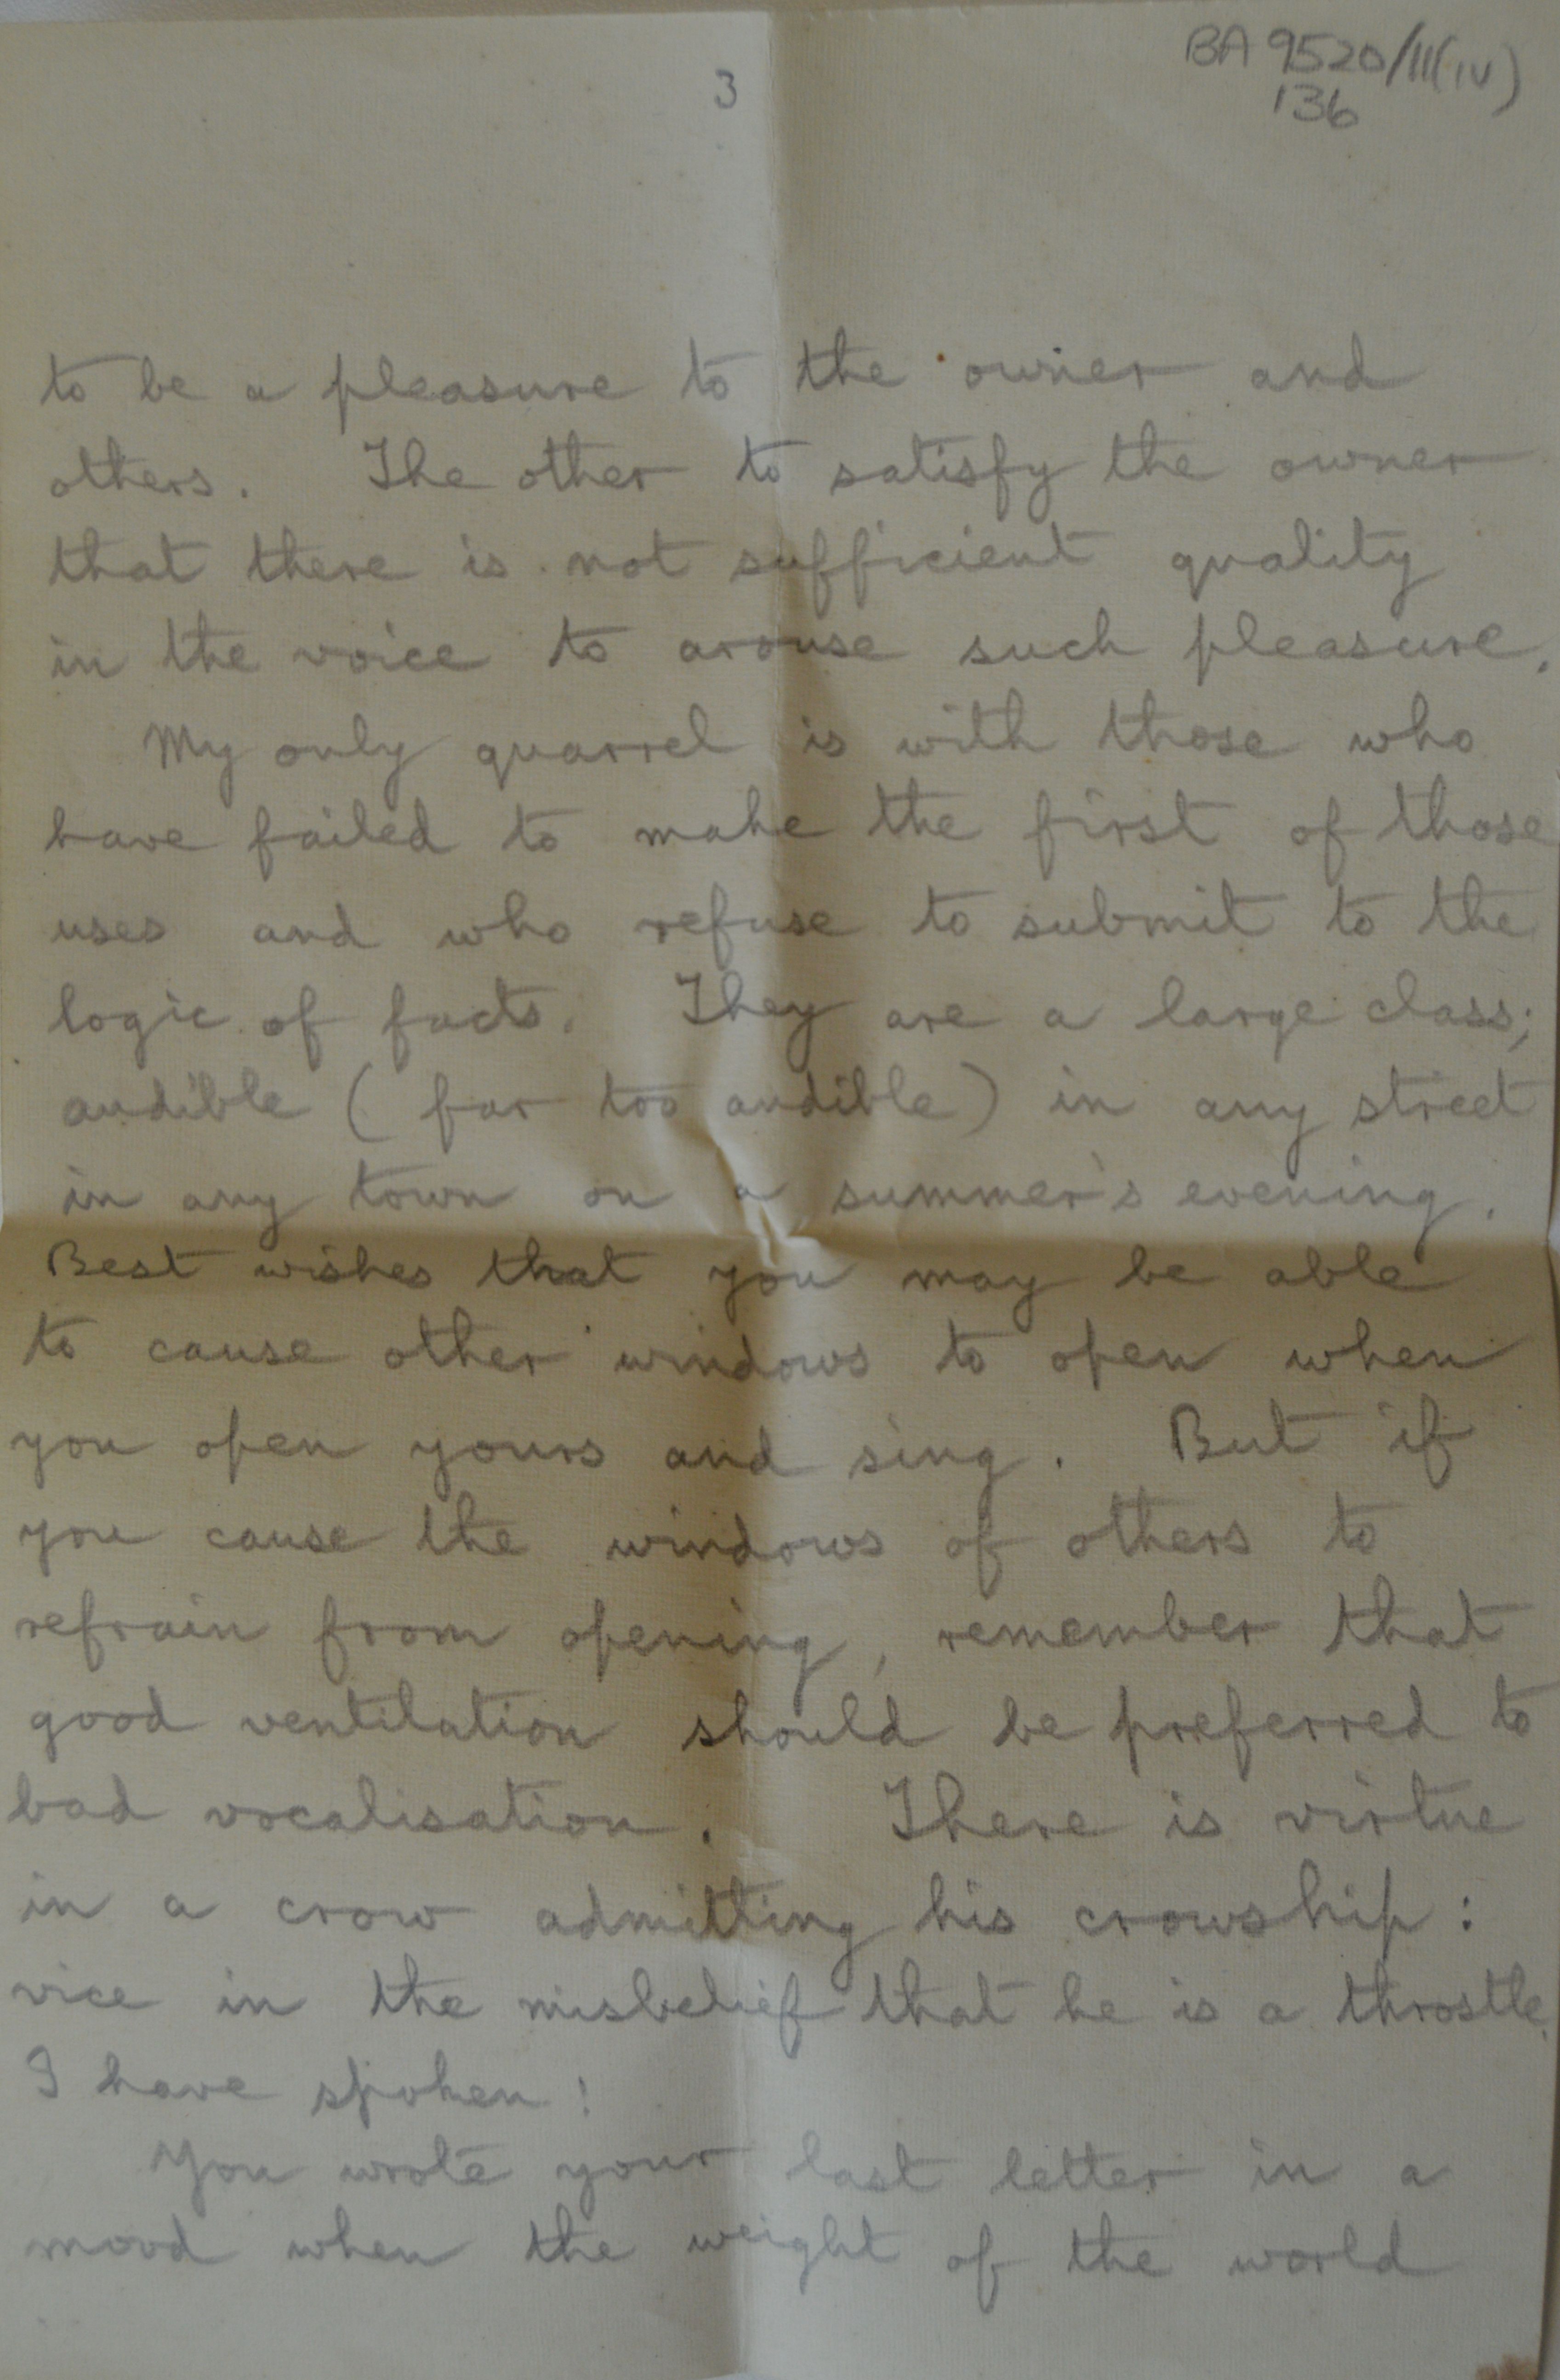 3
BA 9520/11(iv)
136
to be a pleasure to the owner and
others. The other to satisfy the owner
that there is not sufficient quality
in the voice to arouse such pleasure.
My only quarrel is with those who
have failed to make the first of those
uses and who refuse to submit to the
logic of facts. They are a large class;
audible (far too audible) in any street
in any town on a summer's evening.
Best wishes that you may be able
to cause other windows to open when
you open yours and sing. But if
you cause the windows of others to
refrain from opening, remember that
good ventilation should be preferred to
bad vocalisation. There is virtue
in a crow admitting his crowship:
vice in the misbelief that he is a throstle.
I have spoken!
You wrote your last letter in a
mood when the weight of the world